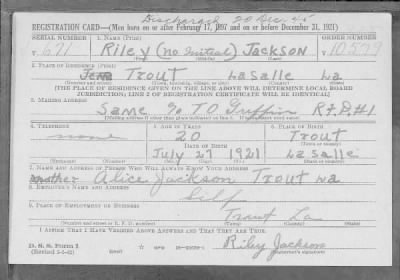 Discharged 20 Dec 45
REGISTRATION CARD—(Men born on or after February 17, 1897 and on or before December 31, 1921)
SERIAL NUMBER 1. NAME (Print) ORDER NUMBER
T 671 Riley (no initial) Jackson 10579
2. PLACE OF RESIDENCE (Print)
Jena Trout La Salle La
(Number and street) (Town, township, village, or city) (County) (State)
[THE PLACE OF RESIDENCE GIVEN ON THE LINE ABOVE WILL DETERMINE LOCAL BOARD
JURISDICTION; LINE 2 OF REGISTRATION CERTIFICATE WILL BE IDENTICAL]
3. MAILING ADDRESS
Same % T O Griffin R.F.D.#1
[Mailing address if other than place indicated on line 2. If same insert word same]
4. TELEPHONE 5. AGE IN YEARS 6. PLACE OF BIRTH
none 20 Trout
DATE OF BIRTH (Town or county)
July 27 1921 La Salle
(Exchange) (Number) (Mo.) (Day) (Yr.) (State or country)
7. NAME AND ADDRESS OF PERSON WHO WILL ALWAYS KNOW YOUR ADDRESS
Mother Alice Jackson Trout La
8. EMPLOYER'S NAME AND ADDRESS
Self
9. PLACE OF EMPLOYMENT OR BUSINESS
Trout La
(Number and street or R. F. D. number) (Town) (County) (State)
I AFFIRM THAT I HAVE VERIFIED ABOVE ANSWERS AND THAT THEY ARE TRUE.
D. S. S. Form 1
Riley Jackson